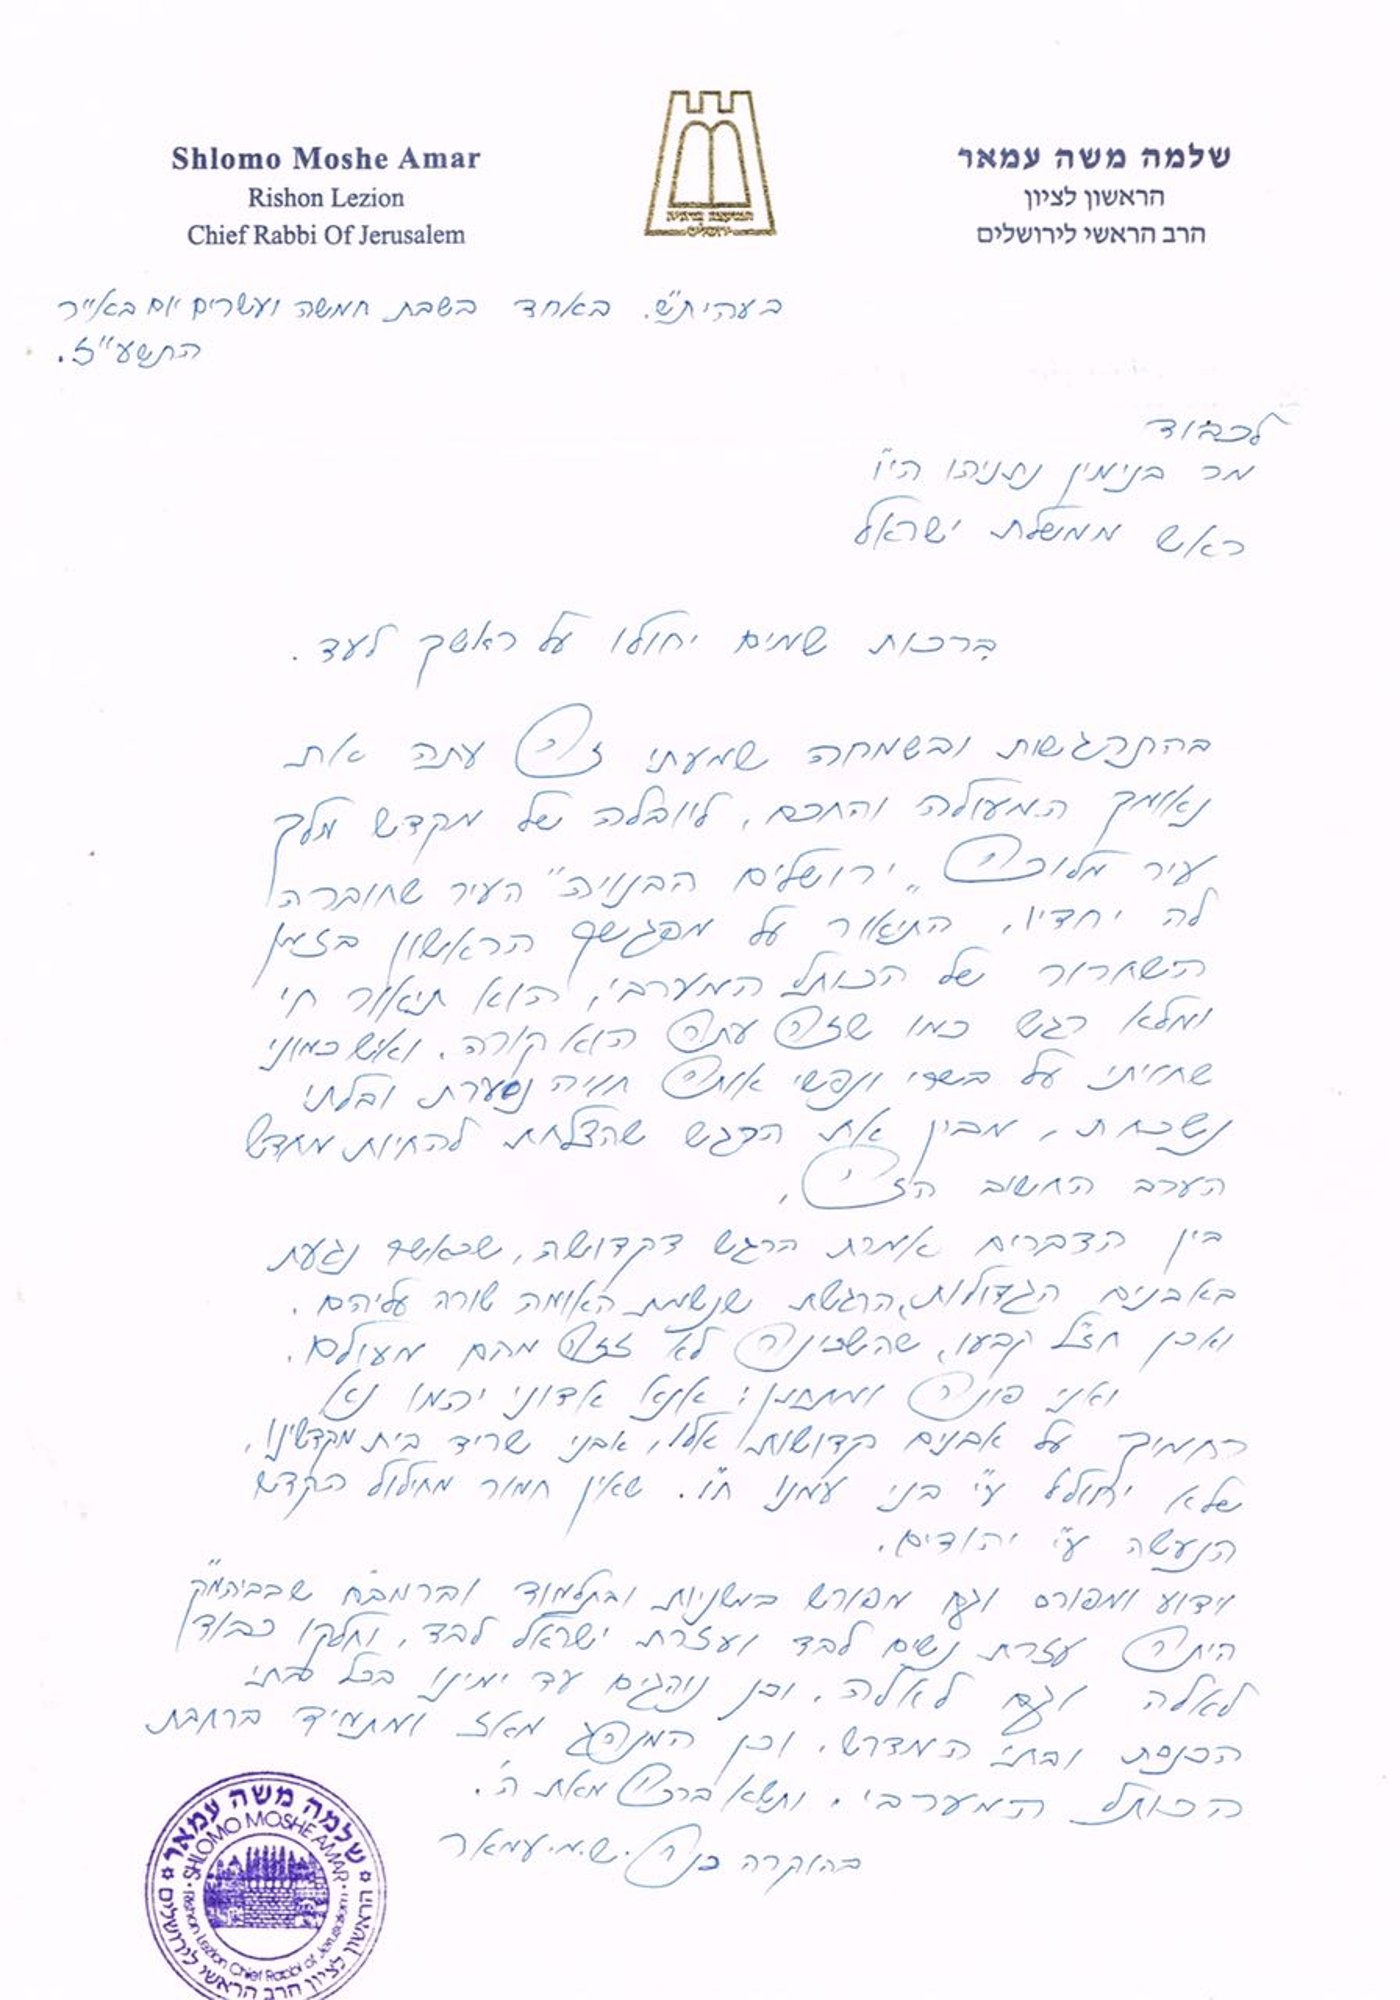 Shlomo Moshe Amar
Rishon Lezion
Chief Rabbi Of Jerusalem
שלמה משה עמאר
הראשון לציון
הרב הראשי לירושלים
המועצה הדתית
ירושלים
בעהית"ש. באחד בשבת חמשה ועשרים יום באייר
התשע"ז.
לכבוד
מר בנימין נתניהו הי"ו
ראש ממשלת ישראל
ברכות שמים יחולו על ראשך לעד.
בהתרגשות ובשמחה שמעתי זה עתה את
נאומך המעולה והחכם, ליובלה של מקדש מלך
עיר מלוכה "ירושלים הבנויה" העיר שחוברה
לה יחדיו, התיאור על מפגשך הראשון בזמן
השחרור של הכותל המערבי, הוא תיאור חי
ומלא רגש כמו שזה עתה הוא קורה. ואיש כמוני
שחויתי על בשרי ונפשי אותה חויה נסערת ובלתי
נשכחת, מבין את הרגש שהצלחת להחיות מחדש
הערב החשוב הזה,
בין הדברים אמרת הרגש דקדושה, שכאשר נגעת
באבנים הגדולות, הרגשת שנשמת האומה שורה עליהם.
ואכן חז"ל קבעו, שהשכינה לא זזה מהם מעולם.
ואני פונה ומתחנן: אנא אדוני יהמו נא
רחמיך על אבנים קדושות אלו, אבני שריד בית מקדשינו,
שלא יחולל ע"י בני עמנו ח"ו. שאין חמור מחילול הקדש
הנעשה ע"י יהודים.
וידוע ומפורסם וגם מפורש במשניות ובתלמוד וברמב"ם שבביהמ"ק
היתה עזרת נשים לבד ועזרת ישראל לבד, וחלקו כבוד
לאלה וגם לאלה, וכן נוהגים עד ימינו בכל בתי
הכנסת ובתי המדרש, וכן המנהג מאז ומתמיד ברחבת
הכותל המערבי, ותשא ברכה מאת ה'.
בהוקרה רבה ש.מ. עמאר
שלמה משה עמאר
SHLOMO MOSHE AMAR
Rishon Lezion Chief Rabbi of Jerusalem
הראשון לציון הרב הראשי לירושלים